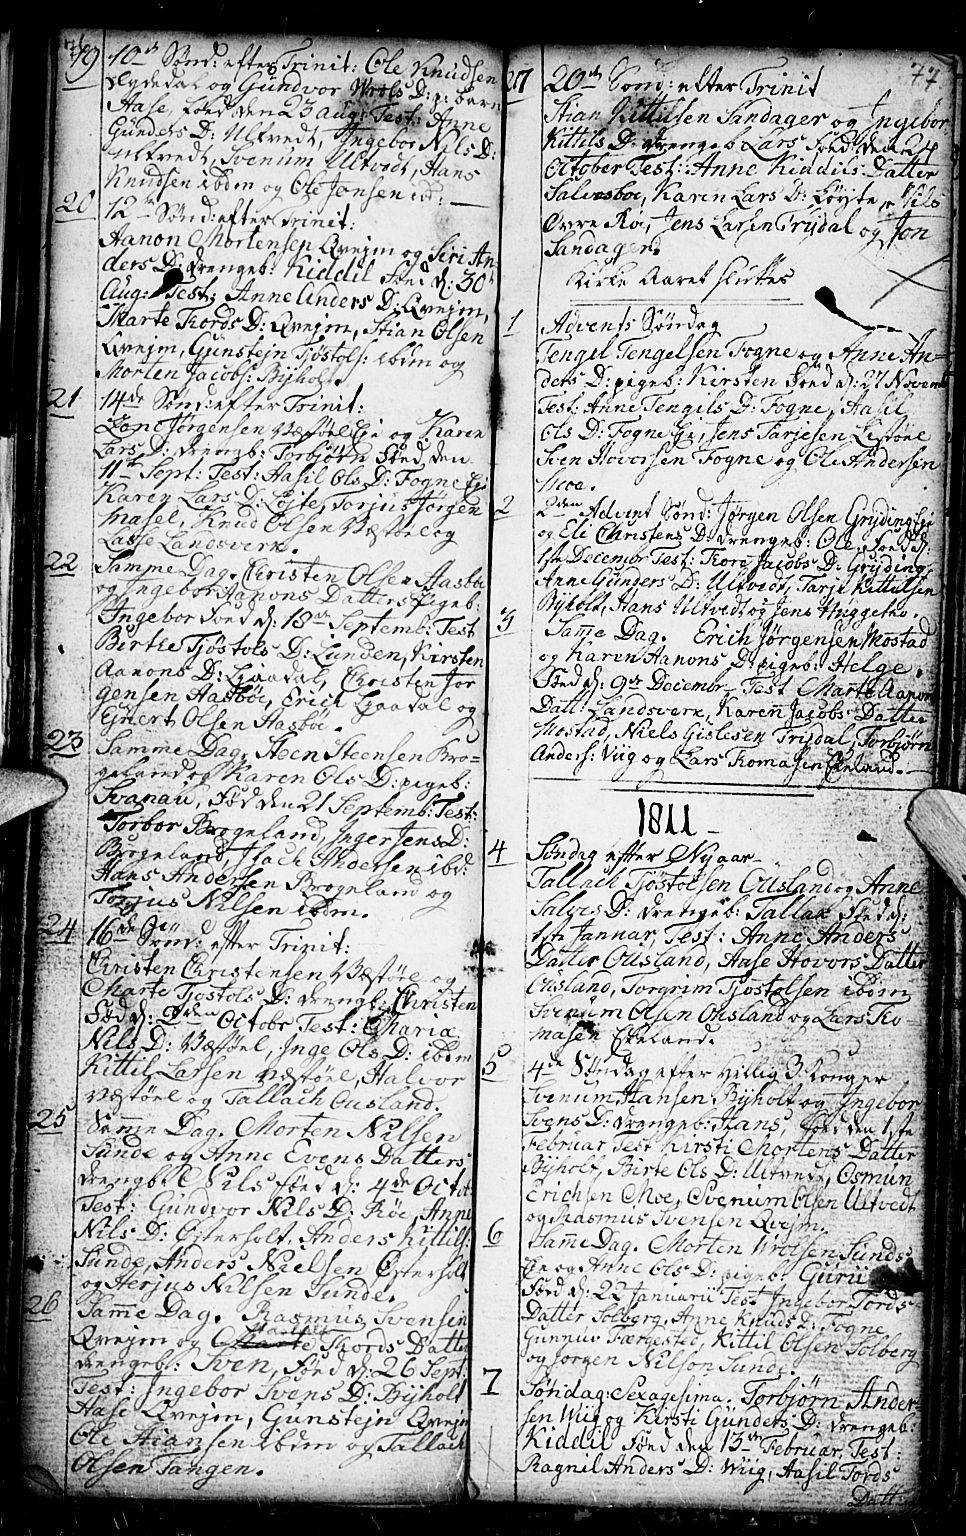 76
19 10de Sønd: efter Trinit: Ole Knudsen
Lydedal og Gundvor Wrols D: p: barn
Aase, fød den 23 aug: Test: Anne
Gunders D: Ultvedt, Ingebor Nils D:
Ultvedt, Svenum Ultvedt, Hans
Knudsen ibdm og Ole Jensen ibd:
20 12te Sønd: efter Trinit:
Aanon Mortensen Qvejm og Siri An-
ders D: drengeb: Kiddil Fød d: 30te
Aug: Test: Anne Anders D: Qvejm,
Marte Tords D: Qvejm, Stian Olsen
Qvejm, Gunstejn Tjøstols: ibdm og
Morten Jacobs: Bijholt.
21 14de Sønd: efter Trinit:
Jørgensen Væstøl Eje og Karen
Lars D: drengb: Torbjørn Fød den
11te Sept: Test: Aasil Ols D: Fogne Eje
Karen Lars D: Løjte, Torjus Jørgen
Masel, Knud Olsen Væstøl og
Lasse Landsverk.
22 Samme Dag. Christen Olsen Aasbøe
og Ingebor Aanons Datters Pigeb:
Ingebor Fød d: 18de Septemb: Test
Birthe Tjøstols D: Lunden, Kirsten
Aanons D: Ljaadal, Christen Jør
gensen Aasbøe, Erich Ljaadal og
Ejnert Olsen Aasbø.
23 Samme Dag, Steen Steensen Bro-
geland og Karen Ols D: pigeb:
Svanau, Fød den 21 Septemb: Test:
Torbor Brogeland, Inger Jens D:
Brogeland, Isach Andersen ibd:
Hans Andersen Brogeland og
Torjus Nilsen ibdm.
24 16de Sønd: efter Trinit:
Christen Christensen Væstøl og
Marte Tjøstols D: drengb: Christen
Fød d: 2den Octobr Test: Maria
Nils D: Væstøel, Inge Ols D: ibdm
Kittil Larsen Væstøel, Halvor
Væstøel og Tallach Ousland.
25 Samme Dag. Morten Nilsen
Sunde og Anne Evens Datters
drengb: Nils Fød d: 4de Octob
Test: Gundvor Nils D: Røe, Anne
Nils D: Østerholt, Anders Kittils:
Sunde, Anders Nielsen Østerholt
og Terjus Nilsen Sunde.
26 Samme Dag. Rasmus Svensen
Qvejm og Tords Datter
drengeb: Sven, Fød d: 26 Sept:
Test: Ingebor Svens D: Bijholt
Aase Qvejm, Gunstejn Qvejm
Ole Stiansen ibdm og Tallach
Olsen Tangen.
77
27 20de Sønd: efter Trinit
Stian Kittilsen Sandager og Ingebor
Kittils D: drengeb Lars Fød den 24
October Test: Anne Kiddils Datter
Salvesboe, Karen Lars D: Løyte, Nils
Øvre Røe, Jens Larsen Trydal og Jon
Sandager.
Kirke Aaret sluttes
1 Advents Søndag
Tengel Tengelsen Fogne og Anne An-
ders D: pigeb: Kirsten Fød d: 27 Novemb
Test: Anne Tengils D: Fogne, Aasil
Ols D: Fogne Ej, Jens Tarjesen Lestøle
Sven Hovorsen Fogne og Ole Andersen
Moe.
2 2den Advent Sønd: Jørgen Olsen Gryding Eje
og Eli Christens D: drengeb: Ole, Fød d:
1te Decembr Test: Tore Jacobs D: Gryding,
Anne Gunders D: Ultvedt, Tarje Kittilsen
Bijholt, Hans Ultvedt og Jens Huggetho.
3 Samme Dag. Erich Jørgensen Mostad
og Karen Aanons D: pigeb: Helge
Fød d: 9de Decembr Test Marte Aanons
Datt: Landsverk, Karen Jacobs Datter
Mostad, Niels Gislesen Trijdal, Torbjørn
Anders: Viig og Lars Tomasen Ekeland.
1811
4 Søndag efter Nyaar
Tallach Tjøstolsen Ousland og Anne
Salvis D: drengeb: Tallak Fød d:
1te Januar, Test: Anne Anders
Datter Ousland, Aase Hovors Datter
Ousland, Torgrim Tjøstolsen ibdm
Svenum Olsen Ousland og Lars To
masen Ekeland.
5 4de Søndag efter Hellig 3 Konger
Svenum Hansen Bijholt og Ingebor
Svens D: drengeb: Hans, Fød den 1te
Februar, Test Kirsti Mortens Datter
Bijholt, Birte Ols D: Ultvedt, Osmun
Erichsen Moe, Svenum Olsen Ultvedt
og Rasmus Svensen Qvejm.
6 Samme Dag. Morten Wrolsen Sunds
Eje og Anne Ols D: pigeb: Guru
Fød d: 22 Januarii Test Ingebor Tords
Datter Solberg, Anne Knuds D: Fogne
Gunnuv Færgested, Kittil Olsen Solberg
og Jørgen Nilson Sunde.
7 Søndag: Sexagesima, Torbjørn Ander-
sen Wiig og Kirsti Gunders D: drengeb:
Kiddil Fød den 13de Februar, Test:
Ragnil Anders D: Wiig, Aasil Tords
Datt